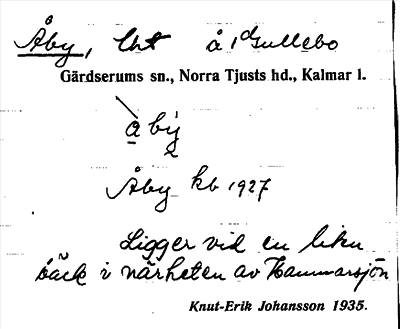 Åby, lht å /Gullebo
Gärdserums sn., Norra Tjusts hd., Kalmar l.
å bý
Åby kb 1927
Ligger vid en liten
bäck i närheten av Hammarsjön
Knut-Erik Johansson 1935.